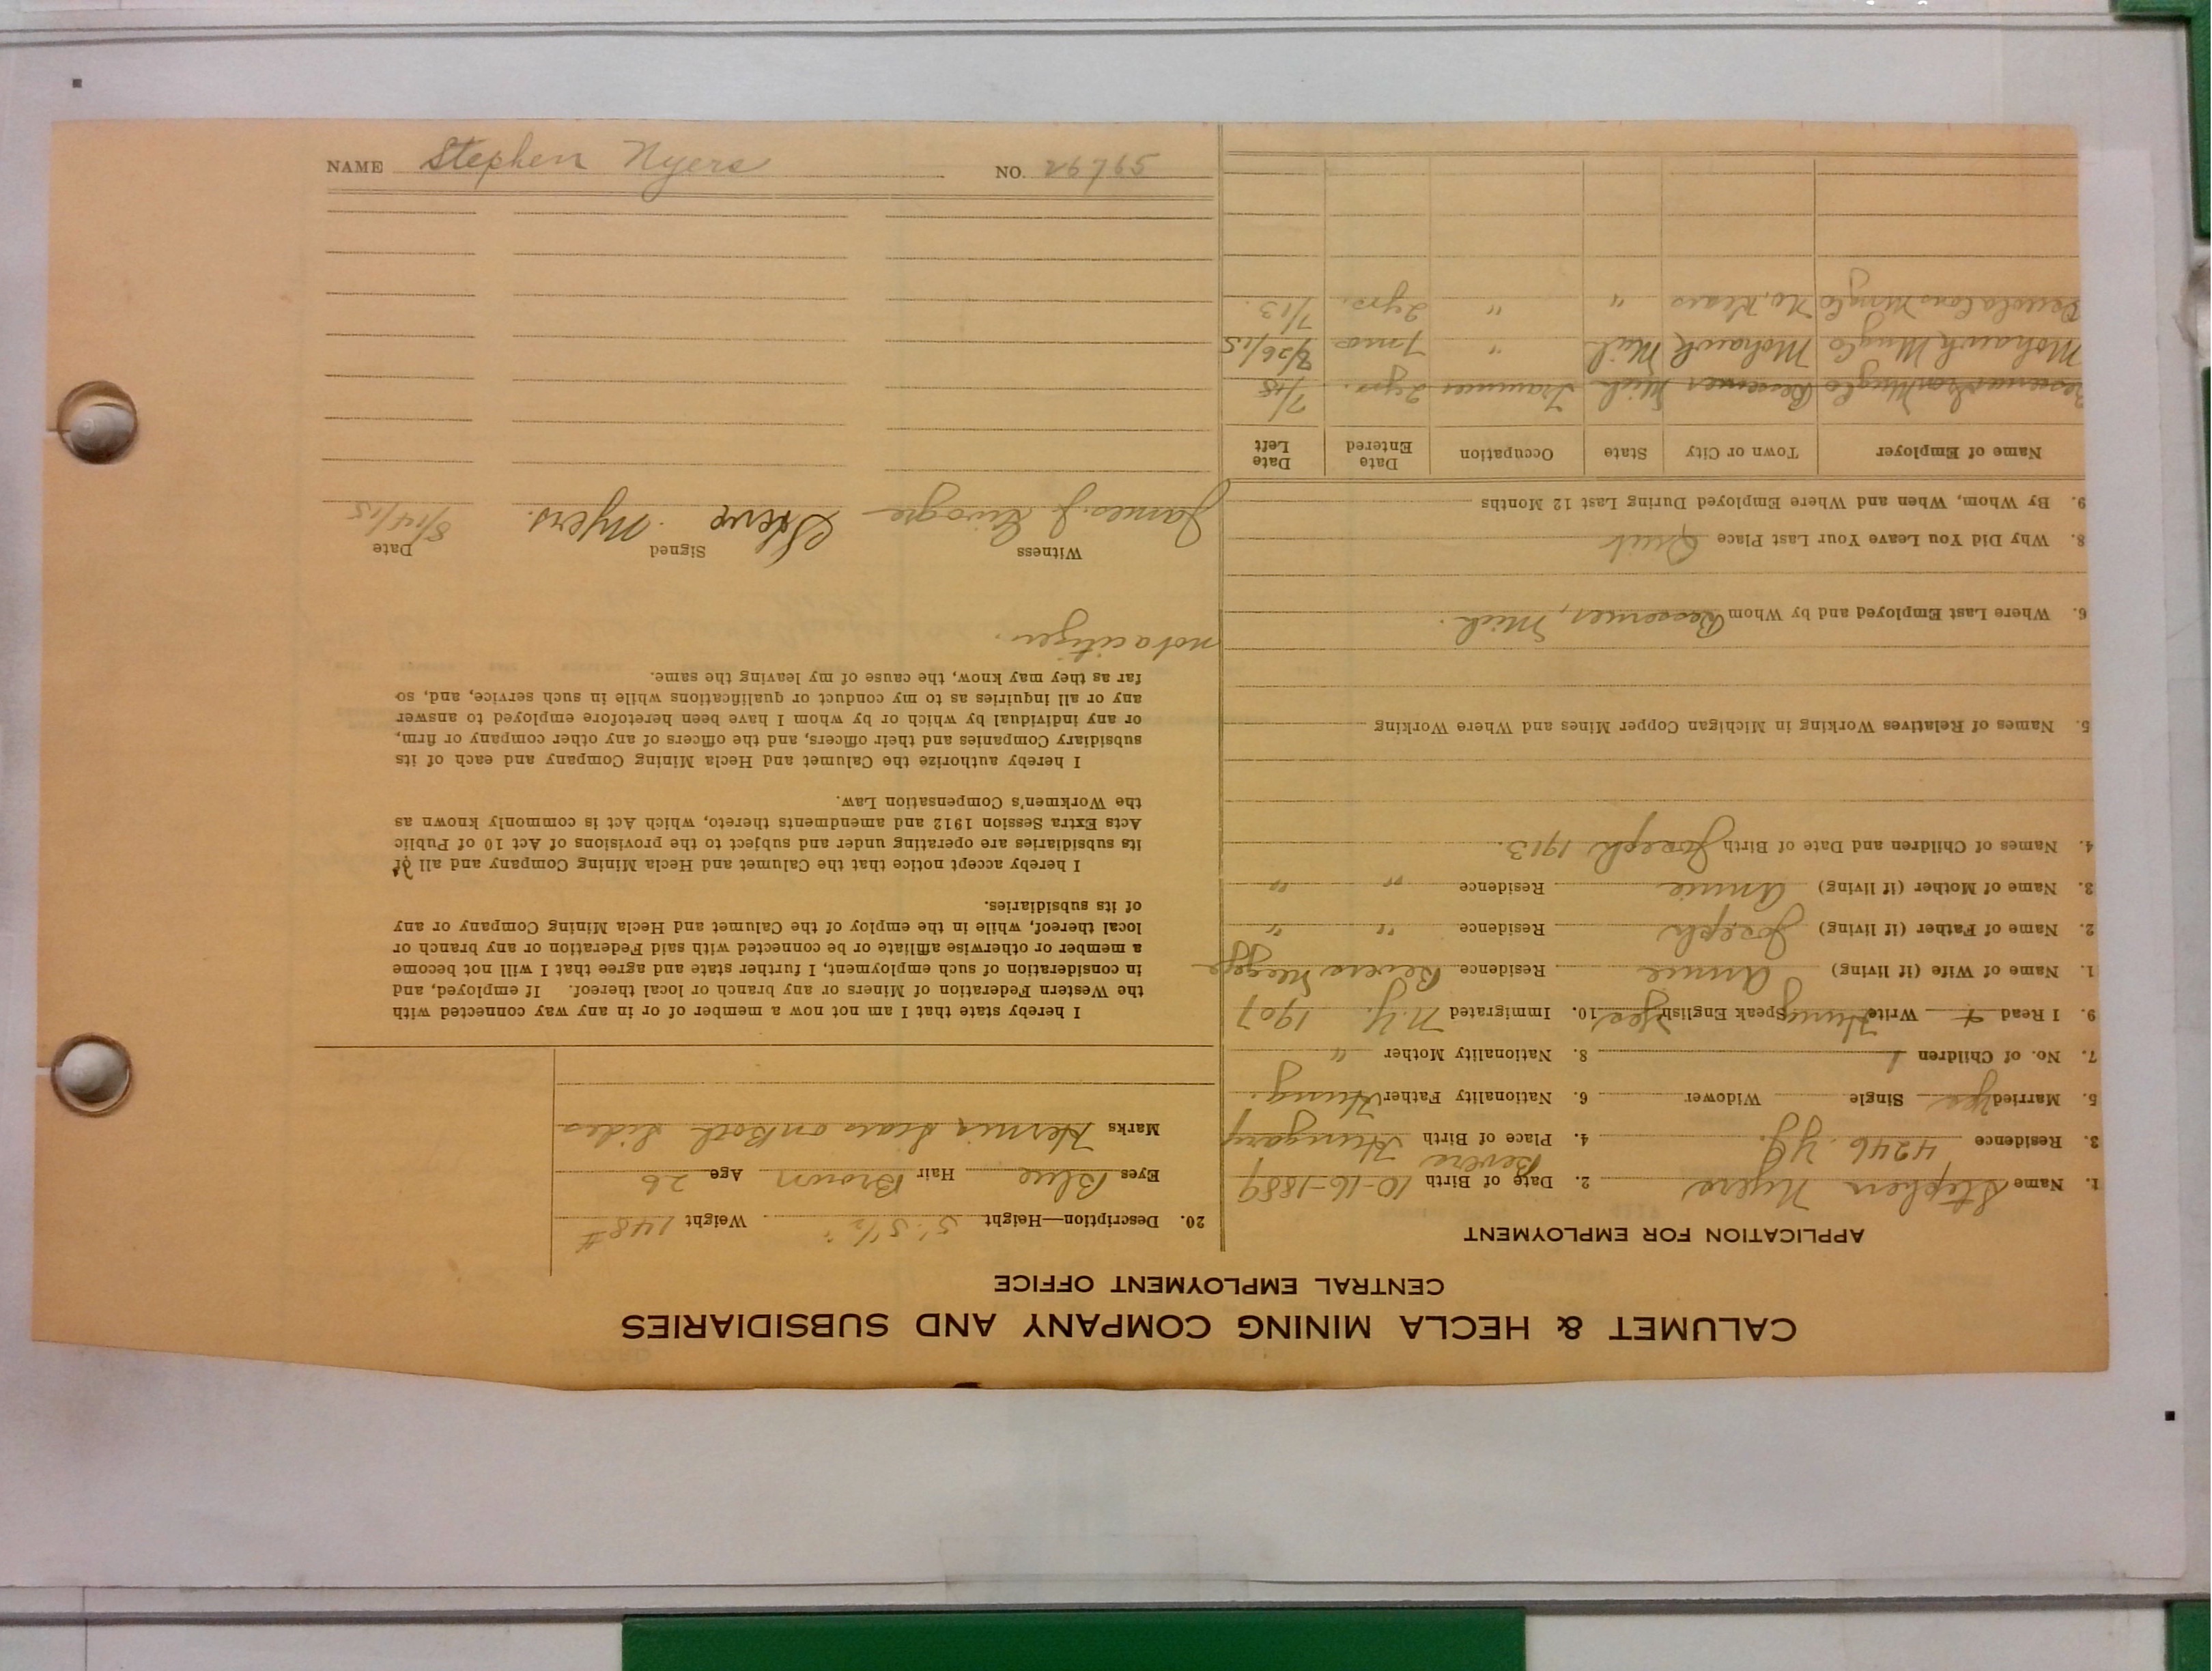 CALUMET & HECLA MINING COMPANY AND SUBSIDIARIES
CENTRAL EMPLOYMENT OFFICE
APPLICATION FOR EMPLOYMENT
1. Name Stephen Nyers 2. Date of Birth 10-16-1889
3. Residence 4246 4. Place of Birth Bevers Hungary
5. Married Yes Single Widower 6. Nationality Father Hung.
7. No. of Children 1 8. Nationality Mother "
9. I Read + Write Hung Speak English Yes 10. Immigrated N.Y. 1907
1. Name of Wife (if living) Annie Residence Bevers
2. Name of Father (if living) Joseph Residence " "
3. Name of Mother (if living) Annie Residence " "
4. Names of Children and Date of Birth Joseph 1913.
5. Names of Relatives Working in Michigan Copper Mines and Where Working
6. Where Last Employed and by Whom Bessemer, Mich.
8. Why Did You Leave Your Last Place Quit
9. By Whom, When and Where Employed During Last 12 Months
Name of Employer Town or City State Occupation Date Entered Date Left
Bessemer Mich Trammer 2 yrs. 7/15
Mohawk Mng Co Mohawk Mich " 7 mos 8/26/15
Osceola Cons Mng Co No. Kears " " 2 yrs. 7/13.
20. Description—Height 5' 5 1/2" Weight 148#
Eyes Blue Hair Brown Age 26
Marks Hernia Scars on Both Sides
I hereby state that I am not now a member of or in any way connected with
the Western Federation of Miners or any branch or local thereof. If employed, and
in consideration of such employment, I further state and agree that I will not become
a member or otherwise affiliate or be connected with said Federation or any branch or
local thereof, while in the employ of the Calumet and Hecla Mining Company or any
of its subsidiaries.
I hereby accept notice that the Calumet and Hecla Mining Company and all of
its subsidiaries are operating under and subject to the provisions of Act 10 of Public
Acts Extra Session 1912 and amendments thereto, which Act is commonly known as
the Workmen's Compensation Law.
I hereby authorize the Calumet and Hecla Mining Company and each of its
subsidiary Companies and their officers, and the officers of any other company or firm,
or any individual by which or by whom I have been heretofore employed to answer
any or all inquiries as to my conduct or qualifications while in such service, and, so
far as they may know, the cause of my leaving the same.
not a citizen.
Witness Signed Date
James J. Steve Nyers. 8/14/15
NAME Stephen Nyers NO. 26765